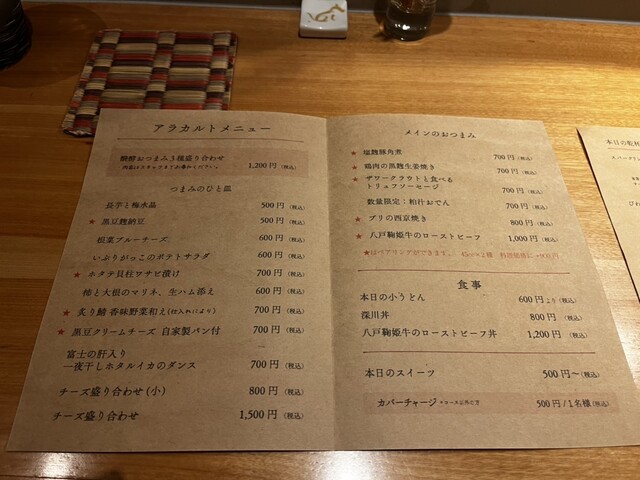 アラカルトメニュー
醗酵おつまみ3種盛り合わせ
1,200円(税込)
内容はスタッフまでお尋ねくださいませ。
つまみのひと皿
長芋と梅水晶 500円(税込)
★ 黒豆麹納豆 500円(税込)
根菜ブルーチーズ 600円(税込)
いぶりがっこのポテトサラダ 600円(税込)
★ ホタテ貝柱ワサビ漬け 700円(税込)
柿と大根のマリネ、生ハム添え 600円(税込)
★ 炙り鯖 香味野菜和え(仕入れにより) 700円(税込)
★ 黒豆クリームチーズ 自家製パン付 700円(税込)
富士の肝入り
一夜干しホタルイカのダンス 700円(税込)
チーズ盛り合わせ(小) 800円(税込)
チーズ盛り合わせ 1,500円(税込)
メインのおつまみ
★ 塩麹豚角煮 700円(税込)
★ 鶏肉の黒麹生姜焼き 700円(税込)
★ ザワークラウトと食べる
トリュフソーセージ 700円(税込)
数量限定:粕汁おでん 700円(税込)
★ ブリの西京焼き 800円(税込)
★ 八戸毬姫牛のローストビーフ 1,000円(税込)
★はペアリングができます。
食事
本日の小うどん 600円より(税込)
深川丼 800円(税込)
八戸毬姫牛のローストビーフ丼 1,200円(税込)
本日のスイーツ 500円〜(税込)
カバーチャージ *コース以外の方 500円/1名様(税込)
本日の乾杯